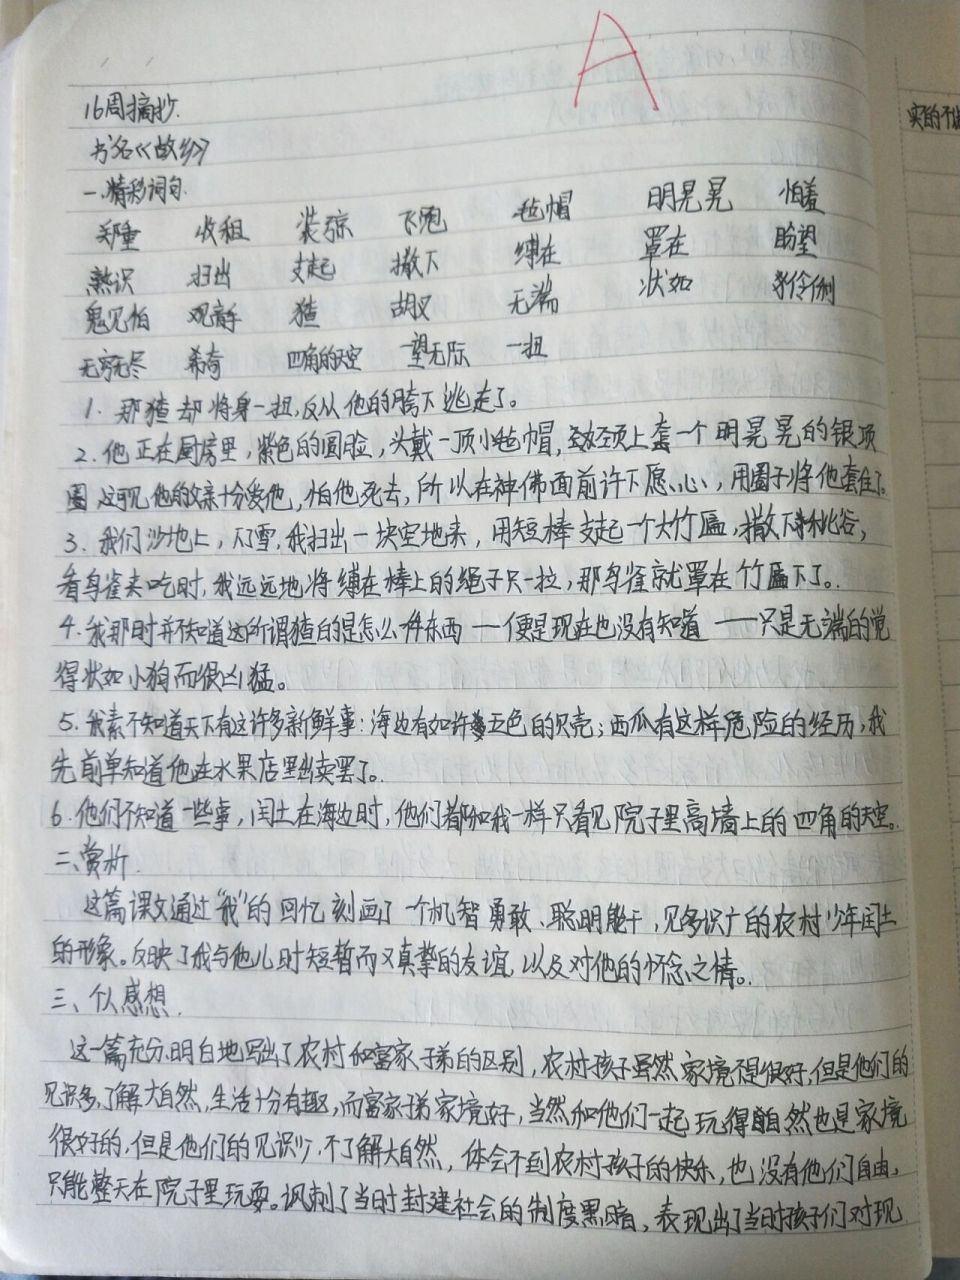 A
16周摘抄.
书名《故乡》
一.精彩词句.
郑重 收租 装弶 飞跑 毡帽 明晃晃 怕羞
熟识 扫出 支起 撒下 缚在 罩在 盼望
鬼见怕 观音手 猹 胡叉 无端 状如 伶俐
无穷无尽 希奇 四角的天空 一望无际 一扭
1. 那猹却将身一扭,反从他的胯下逃走了。
2. 他正在厨房里,紫色的圆脸,头戴一顶小毡帽,颈上套一个明晃晃的银项
圈 这可见他的父亲十分爱他,怕他死去,所以在神佛面前许下愿心,用圈子将他套住了。
3. 我们沙地上,下了雪,我扫出一块空地来,用短棒支起一个大竹匾,撒下秕谷,
看鸟雀来吃时,我远远地将缚在棒上的绳子只一拉,那鸟雀就罩在竹匾下了。
4. 我那时并不知道这所谓猹的是怎么一件东西——便是现在也没有知道——只是无端的觉
得状如小狗而很凶猛。
5. 我素不知道天下有这许多新鲜事:海边有如许多五色的贝壳;西瓜有这样危险的经历,我
先前单知道他在水果店里出卖罢了。
6. 他们不知道一些事,闰土在海边时,他们都和我一样只看见院子里高墙上的四角的天空。
二.赏析.
这篇课文通过"我"的回忆刻画了一个机智勇敢、聪明能干,见多识广的农村少年闰土
的形象。反映了我与他儿时短暂而又真挚的友谊 以及对他的怀念之情。
三、个人感想.
这一篇充分明白地写出了农村和富家子弟的区别,农村孩子虽然家境不是很好,但是他们的
见识多,了解大自然,生活十分有趣,而富家子弟家境好,当然和他们一起玩得自然也是家境
很好的,但是他们的见识少.不了解大自然,体会不到农村孩子的快乐,也没有他们自由,
只能整天在院子里玩耍。讽刺了当时封建社会的制度黑暗,表现出了当时孩子们对现
实的不